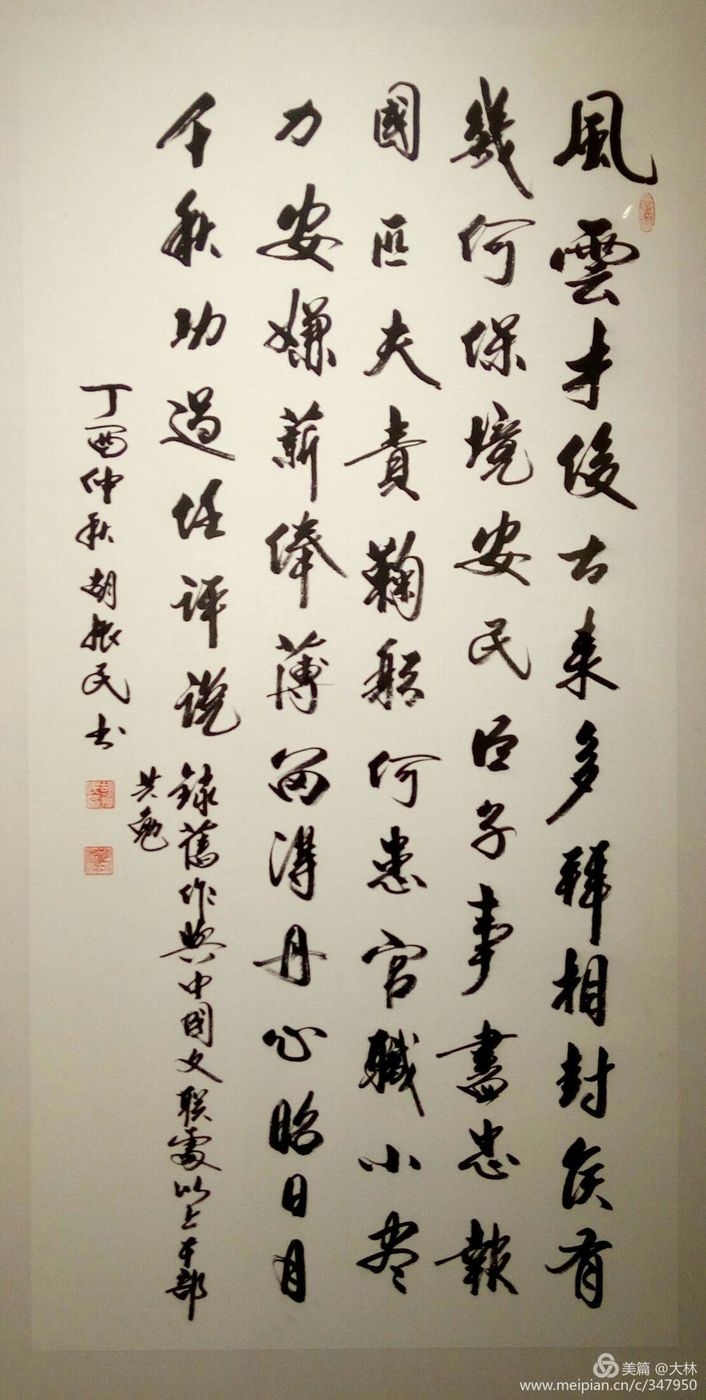 風雲才俊古来多拜相封侯有
幾何保境安民臣子事盡忠報
國匹夫責鞠躬何患官職小尽
力安嫌薪俸薄留得丹心昭日月
千秋功過任评说
錄舊作與中国文联處以上干部
共勉
丁酉仲秋胡振民书
美篇 @大林
www.meipian.cn/c/347950